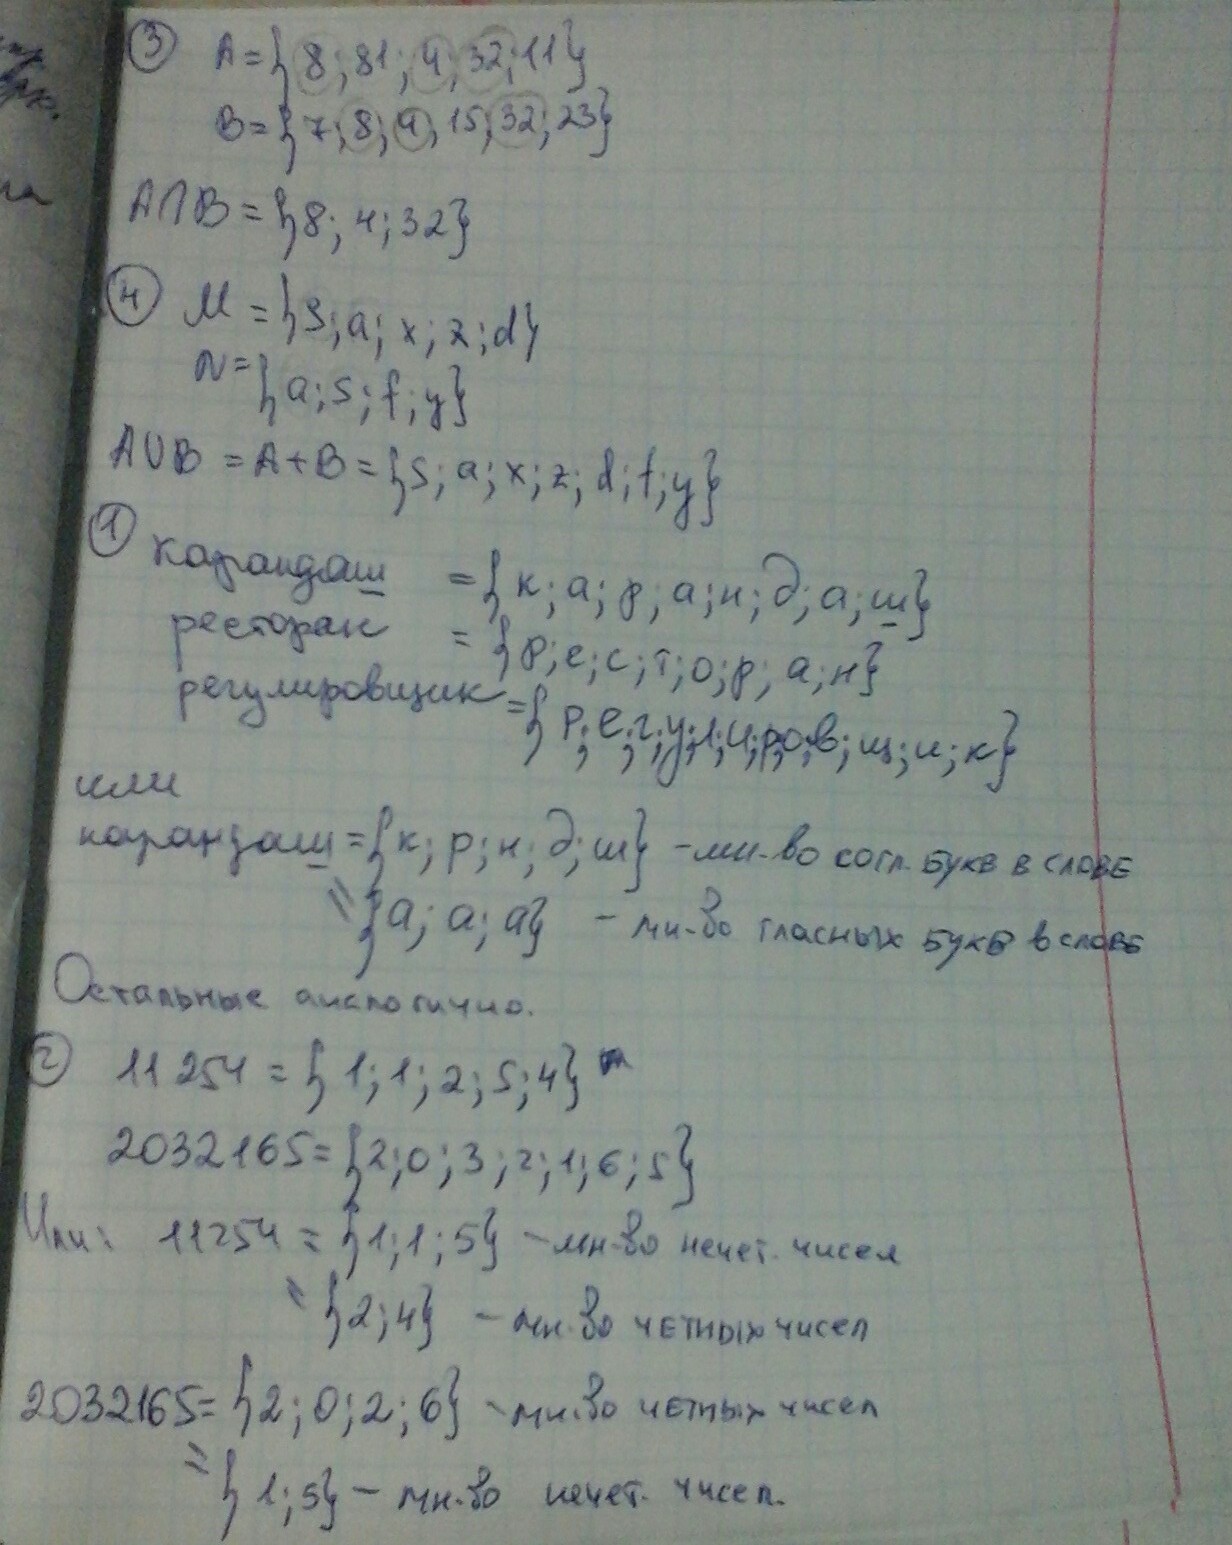 ③ A = {8; 81; 4; 32; 11}
B = {7; 8; 4; 15; 32; 23}
A∩B = {8; 4; 32}
④ M = {S; a; x; z; d}
N = {a; s; f; y}
A∪B = A+B = {S; a; x; z; d; f; y}
① карандаш = {к; а; р; а; н; д; а; ш}
ресторан = {р; е; с; т; о; р; а; н}
регулировщик = {р; е; г; у; л; и; р; о; в; щ; и; к}
или
карандаш = {к; р; н; д; ш} - мн-во согл. букв в слове
= {а; а; а} - мн-во гласных букв в слове
Остальные аналогично.
② 11254 = {1; 1; 2; 5; 4}
2032165 = {2; 0; 3; 2; 1; 6; 5}
Или: 11254 = {1; 1; 5} - мн-во нечет. чисел
= {2; 4} - мн-во четных чисел
2032165 = {2; 0; 2; 6} - мн-во четных чисел
= {1; 5} - мн-во нечет. чисел.